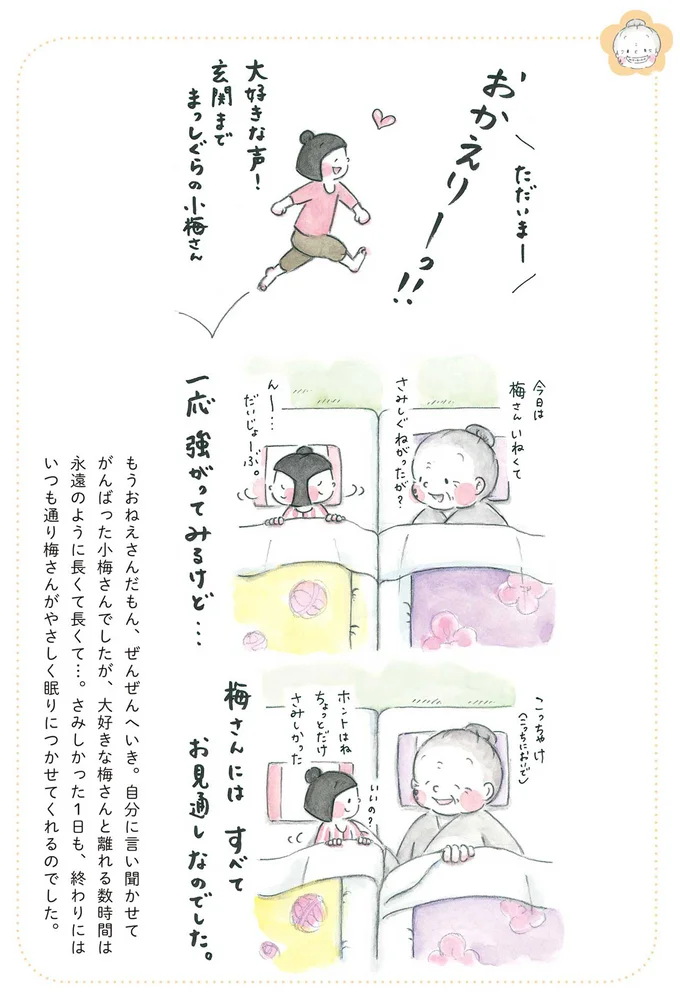 ただいまー
おかえりーっ!!
大好きな声!
玄関まで
まっしぐらの小梅さん
今日は
梅さん いねくて
さみしぐ ねがったが?
んー…
だいじょーぶ。
一応 強がってみるけど…
こっちゃけ
(こっちにおいで)
いいの?
ホントはね
ちょっとだけ
さみしかった
梅さんには すべて
お見通しなのでした。
もうおねえさんだもん、ぜんぜんへいき。自分に言い聞かせて
がんばった小梅さんでしたが、大好きな梅さんと離れる数時間は
永遠のように長くて長くて…。さみしかった1日も、終わりには
いつも通り梅さんがやさしく眠りにつかせてくれるのでした。